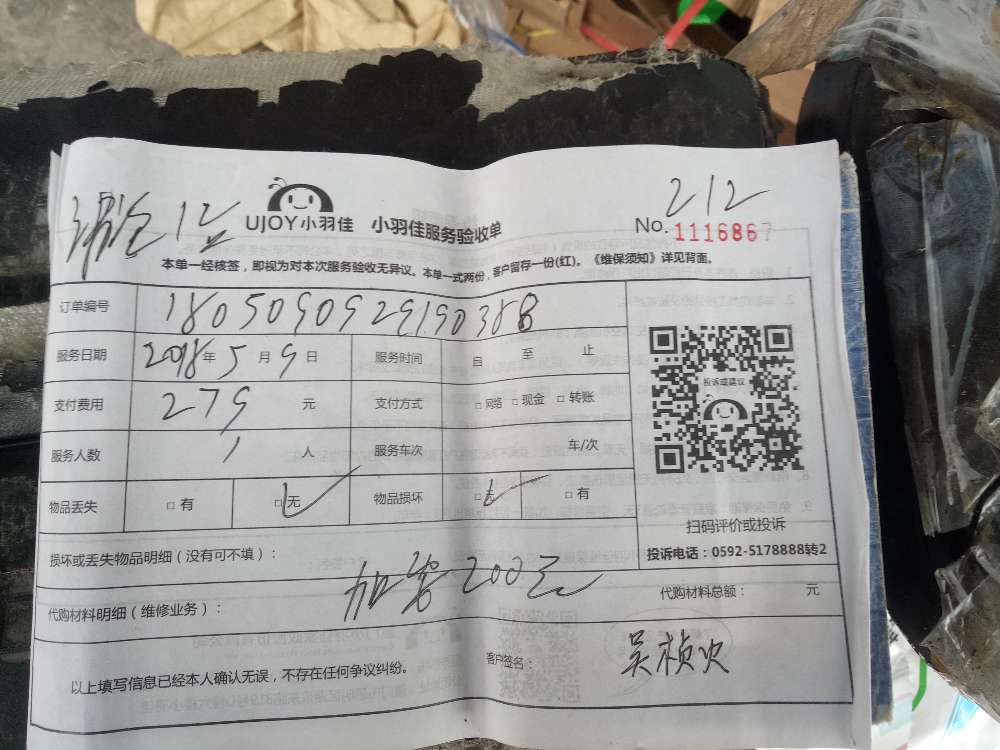 212
UJOY小羽佳 小羽佳服务验收单
No. 1116867
本单一经核签，即视为对本次服务验收无异议。本单一式两份，客户留存一份(红)。《维保须知》详见背面。
订单编号 1805090929190388
服务日期 2018年5月9日 服务时间 自 至 止
支付费用 279 元 支付方式 □网络 □现金 □转账
服务人数 1 人 服务车次 车/次
物品丢失 □有 □无 物品损坏 □无 □有
投诉或建议
扫码评价或投诉
投诉电话：0592-5178888转2
损坏或丢失物品明细（没有可不填）：
加氨200元
代购材料明细（维修业务）： 代购材料总额： 元
以上填写信息已经本人确认无误，不存在任何争议纠纷。 客户签名：